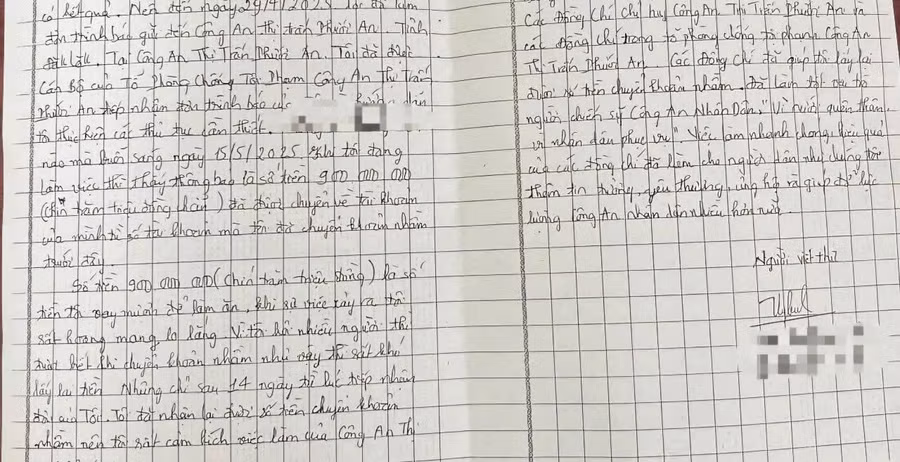 có kết quả. Nên đến ngày 29/4/2025 tôi đã làm
đơn trình báo gửi đến Công An thị trấn Phước An. Tỉnh
Đắk Lắk. Tại Công An Thị Trấn Phước An. Tôi đã được
Cán Bộ của Tổ Phòng Chống Tội Phạm Công An Thị Trấn
Phước An tiếp nhận đơn trình báo
tôi thực hiện các thủ tục cần thiết.
nào mà buổi sáng ngày 15/5/2025 khi tôi đang
làm việc thì thấy thông báo là số tiền 900 000 000
(Chín trăm triệu đồng chẵn) đã được chuyển về tài khoản
của mình từ số tài khoản mà tôi đã chuyển khoản nhầm
trước đây.
Số tiền 900 000 000 (Chín trăm triệu đồng) là số
tiền tôi vay mượn để làm ăn, khi sự việc xảy ra tôi
rất hoang mang, lo lắng. Vì tôi hỏi nhiều người thì
được biết khi chuyển khoản nhầm như vậy thì rất khó
lấy lại tiền. Nhưng chỉ sau 14 ngày từ lúc tiếp nhận
đơn của Tôi. Tôi đã nhận lại được số tiền chuyển khoản
nhầm nên tôi rất cảm kích việc làm của Công An Thị
Các Đồng Chí chỉ huy Công An. Thị Trấn Phước An và
các đồng chí trong tổ phòng chống tội phạm Công An
Thị Trấn Phước An. Các đồng chí đã giúp tôi lấy lại
được số tiền chuyển khoản nhầm. Đã làm tốt vai trò
người chiến sỹ Công An Nhân Dân. "Vì nước quên thân,
vì nhân dân phục vụ". Việc làm nhanh chóng, hiệu quả
của các đồng chí đã làm cho người dân như chúng tôi
thêm tin tưởng, yêu thương, ủng hộ và giúp đỡ lực
lượng Công An nhân dân nhiều hơn nữa.
Người viết thư